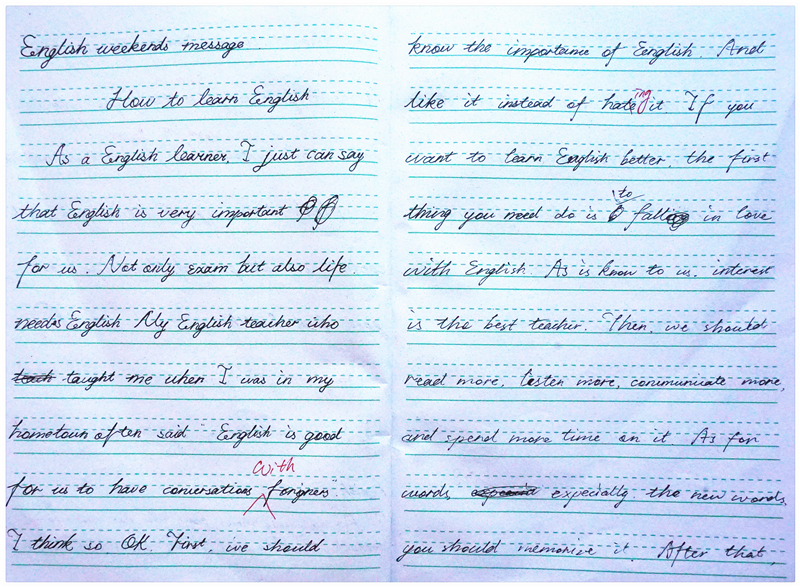 English weekends message.
How to learn English
As a English learner, I just can say
that English is very important
for us. Not only exam but also life
needs English My English teacher who
taught me when I was in my
hometown often said English is good
for us to have conversations with forigners.
I think so OK. First, we should
know the importance of English. And
like it instead of hateing it If you
want to learn English better, the first
thing you need do is to fall in love
with English. As is know to us, interest
is the best teacher. Then, we should
read more, listen more, communicate more,
and spend more time on it. As for
words, expecially the new words,
you should memorize it. After that,